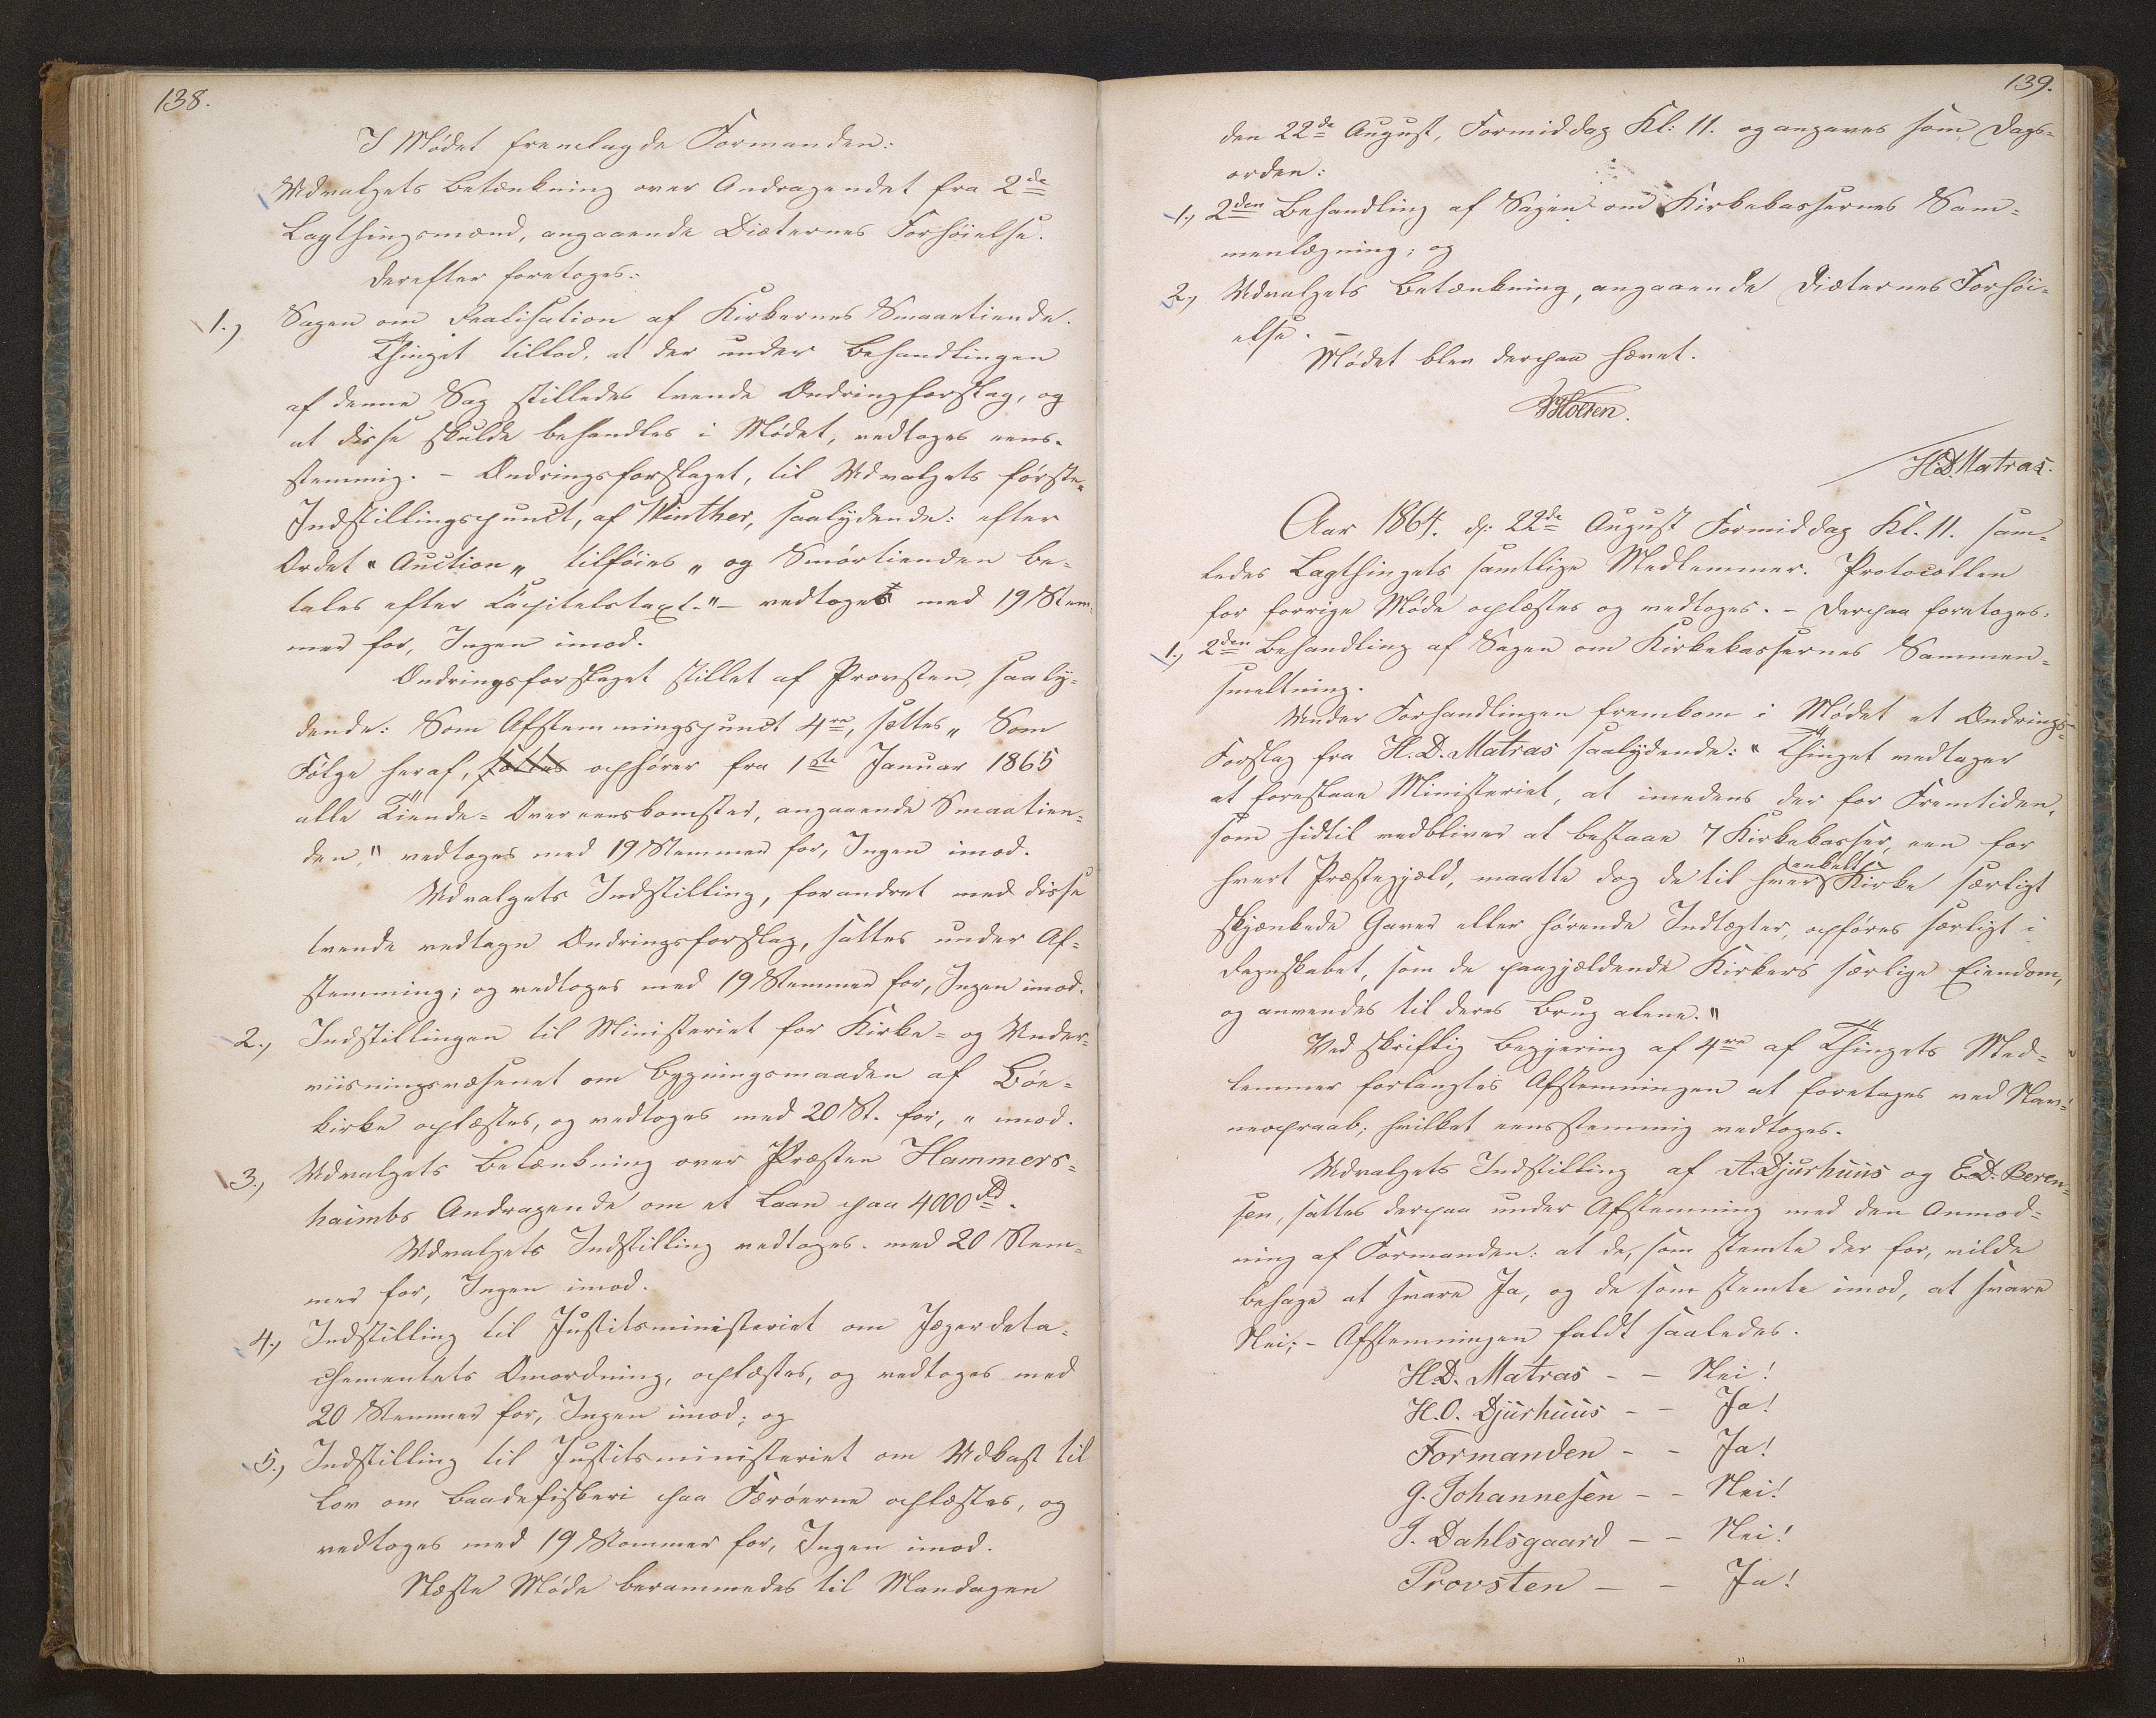 138.
I Mødet fremlagde Formanden:
Udvalgets Betænkning over Andragendet fra 2de
Lagthingsmænd, angaaende Diæternes Forhøielse.
Derefter foretoges:
1.) Sagen om Realisation af Kirkernes Smaatiende.
Thinget tillod, at der under Behandlingen
af denne Sag stilledes tvende Ændringforslag, og
at disse skulde behandles i Mødet, vedtoges eens-
stemmig. – Ændringsforslaget, til Udvalgets første
Indstillingspunct, af Winther, saalydende: efter
Ordet "Auction" tilføies "og Smørtienden be-
tales efter Capitelstaxt." – vedtoges med 19 Stem-
mer for, Ingen imod.
Ændringsforslaget stillet af Provsten, saaly-
dende: Som Afstemmingspunct 4re, sættes "Som
Følge heraf, sættes ophører fra 1ste Januar 1865
alle Tiende-Overeenskomster, angaaende Smaatien-
den," vedtoges med 19 Stemmer for, Ingen imod.
Udvalgets Indstilling, forandret med disse
tvende vedtagne Ændringsforslag, sattes under Af-
stemming; og vedtoges med 19 Stemmer for, Ingen imod.
2.) Indstillingen til Ministeriet for Kirke- og Under-
viisningsvæsenet om Bygningsmaaden af Bøe-
kirke oplæstes, og vedtoges med 20 St. for, " imod.
3.) Udvalgets Betænkning over Præsten Hammers-
haimbs Andragende om et Laan paa 4000 Rd.
Udvalgets Indstilling vedtoges med 20 Stem-
mer for, Ingen imod.
4.) Indstilling til Justitsministeriet om Jægerdeta-
chementets Omordning, oplæstes, og vedtoges med
20 Stemmer for, Ingen imod; og
5.) Indstilling til Justitsministeriet om Udkast til
Lov om Baadefiskeri paa Færøerne oplæstes, og
vedtoges med 19 Stemmer for, Ingen imod.
Næste Møde berammedes til Mandagen
139.
den 22de August, Formiddag Kl: 11. og angaves som Dags-
orden:
1.) 2den Behandling af Sagen om Kirkekassernes Sam-
menlægning; og
2.) Udvalgets Betænkning, angaaende Diæternes Forhøi-
else. –
Mødet blev derpaa hævet.
Holten.
H.D. Matras.
Aar 1864. d: 22de August Formiddag Kl. 11. sam-
ledes Lagthingets samtlige Medlemmer. Protocollen
for forrige Møde oplæstes og vedtoges. – Derpaa foretoges:
1.) 2den Behandling af Sagen om Kirkekassernes Sammen-
smeltning.
Under Forhandlingen fremkom i Mødet et Ændrings-
Forslag fra H.D. Matras saalydende: "Thinget vedtager
at foreslaae Ministeriet, at imedens der for Fremtiden,
som hidtil vedbliver at bestaae 7 Kirkekasser, een for
hvert Præstegjæld, maatte dog de til hver enkelt Kirke særligt
skjænkede Gaver eller hørende Indtægter, opføres særligt i
Regnskabet, som de paagjældende Kirkers særlige Eiendom,
og anvendes til deres Brug alene."
Ved skriftlig Begjering af 4re af Thingets Med-
lemmer forlangtes Afstemningen at foretages ved Nav-
neopraab; hvilket eensstemmig vedtoges.
Udvalgets Indstilling af A. Djurhuus og E.D. Beren-
sen, sattes derpaa under Afstemning med den Anmod-
ning af Formanden: at de, som stemte der for, vilde
behage at svare Ja, og de som stemte imod, at svare
Nei; – Afstemningen faldt saaledes.
H.D. Matras – – Nei!
H.O. Djurhuus – – Ja!
Formanden – – Ja!
G. Johannesen – – Nei!
J. Dahlsgaard – – Nei!
Provsten – – Ja!